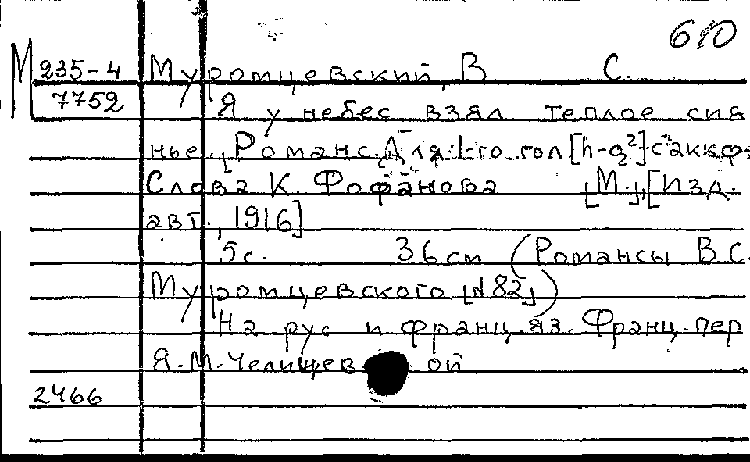 610
М 235-4 Муромцевский, В С.
7752 Я у небес взял теплое сия
нье. [Романс. Для 1-го гол [h-g²] с аккф.
Слова К. Фофанова [М.], [Изд.
авт., 1916]
5с. 36см (Романсы В.С.
Муромцевского [№82])
На рус и франц. яз. Франц. пер
Я.М. Челищев ой
2466